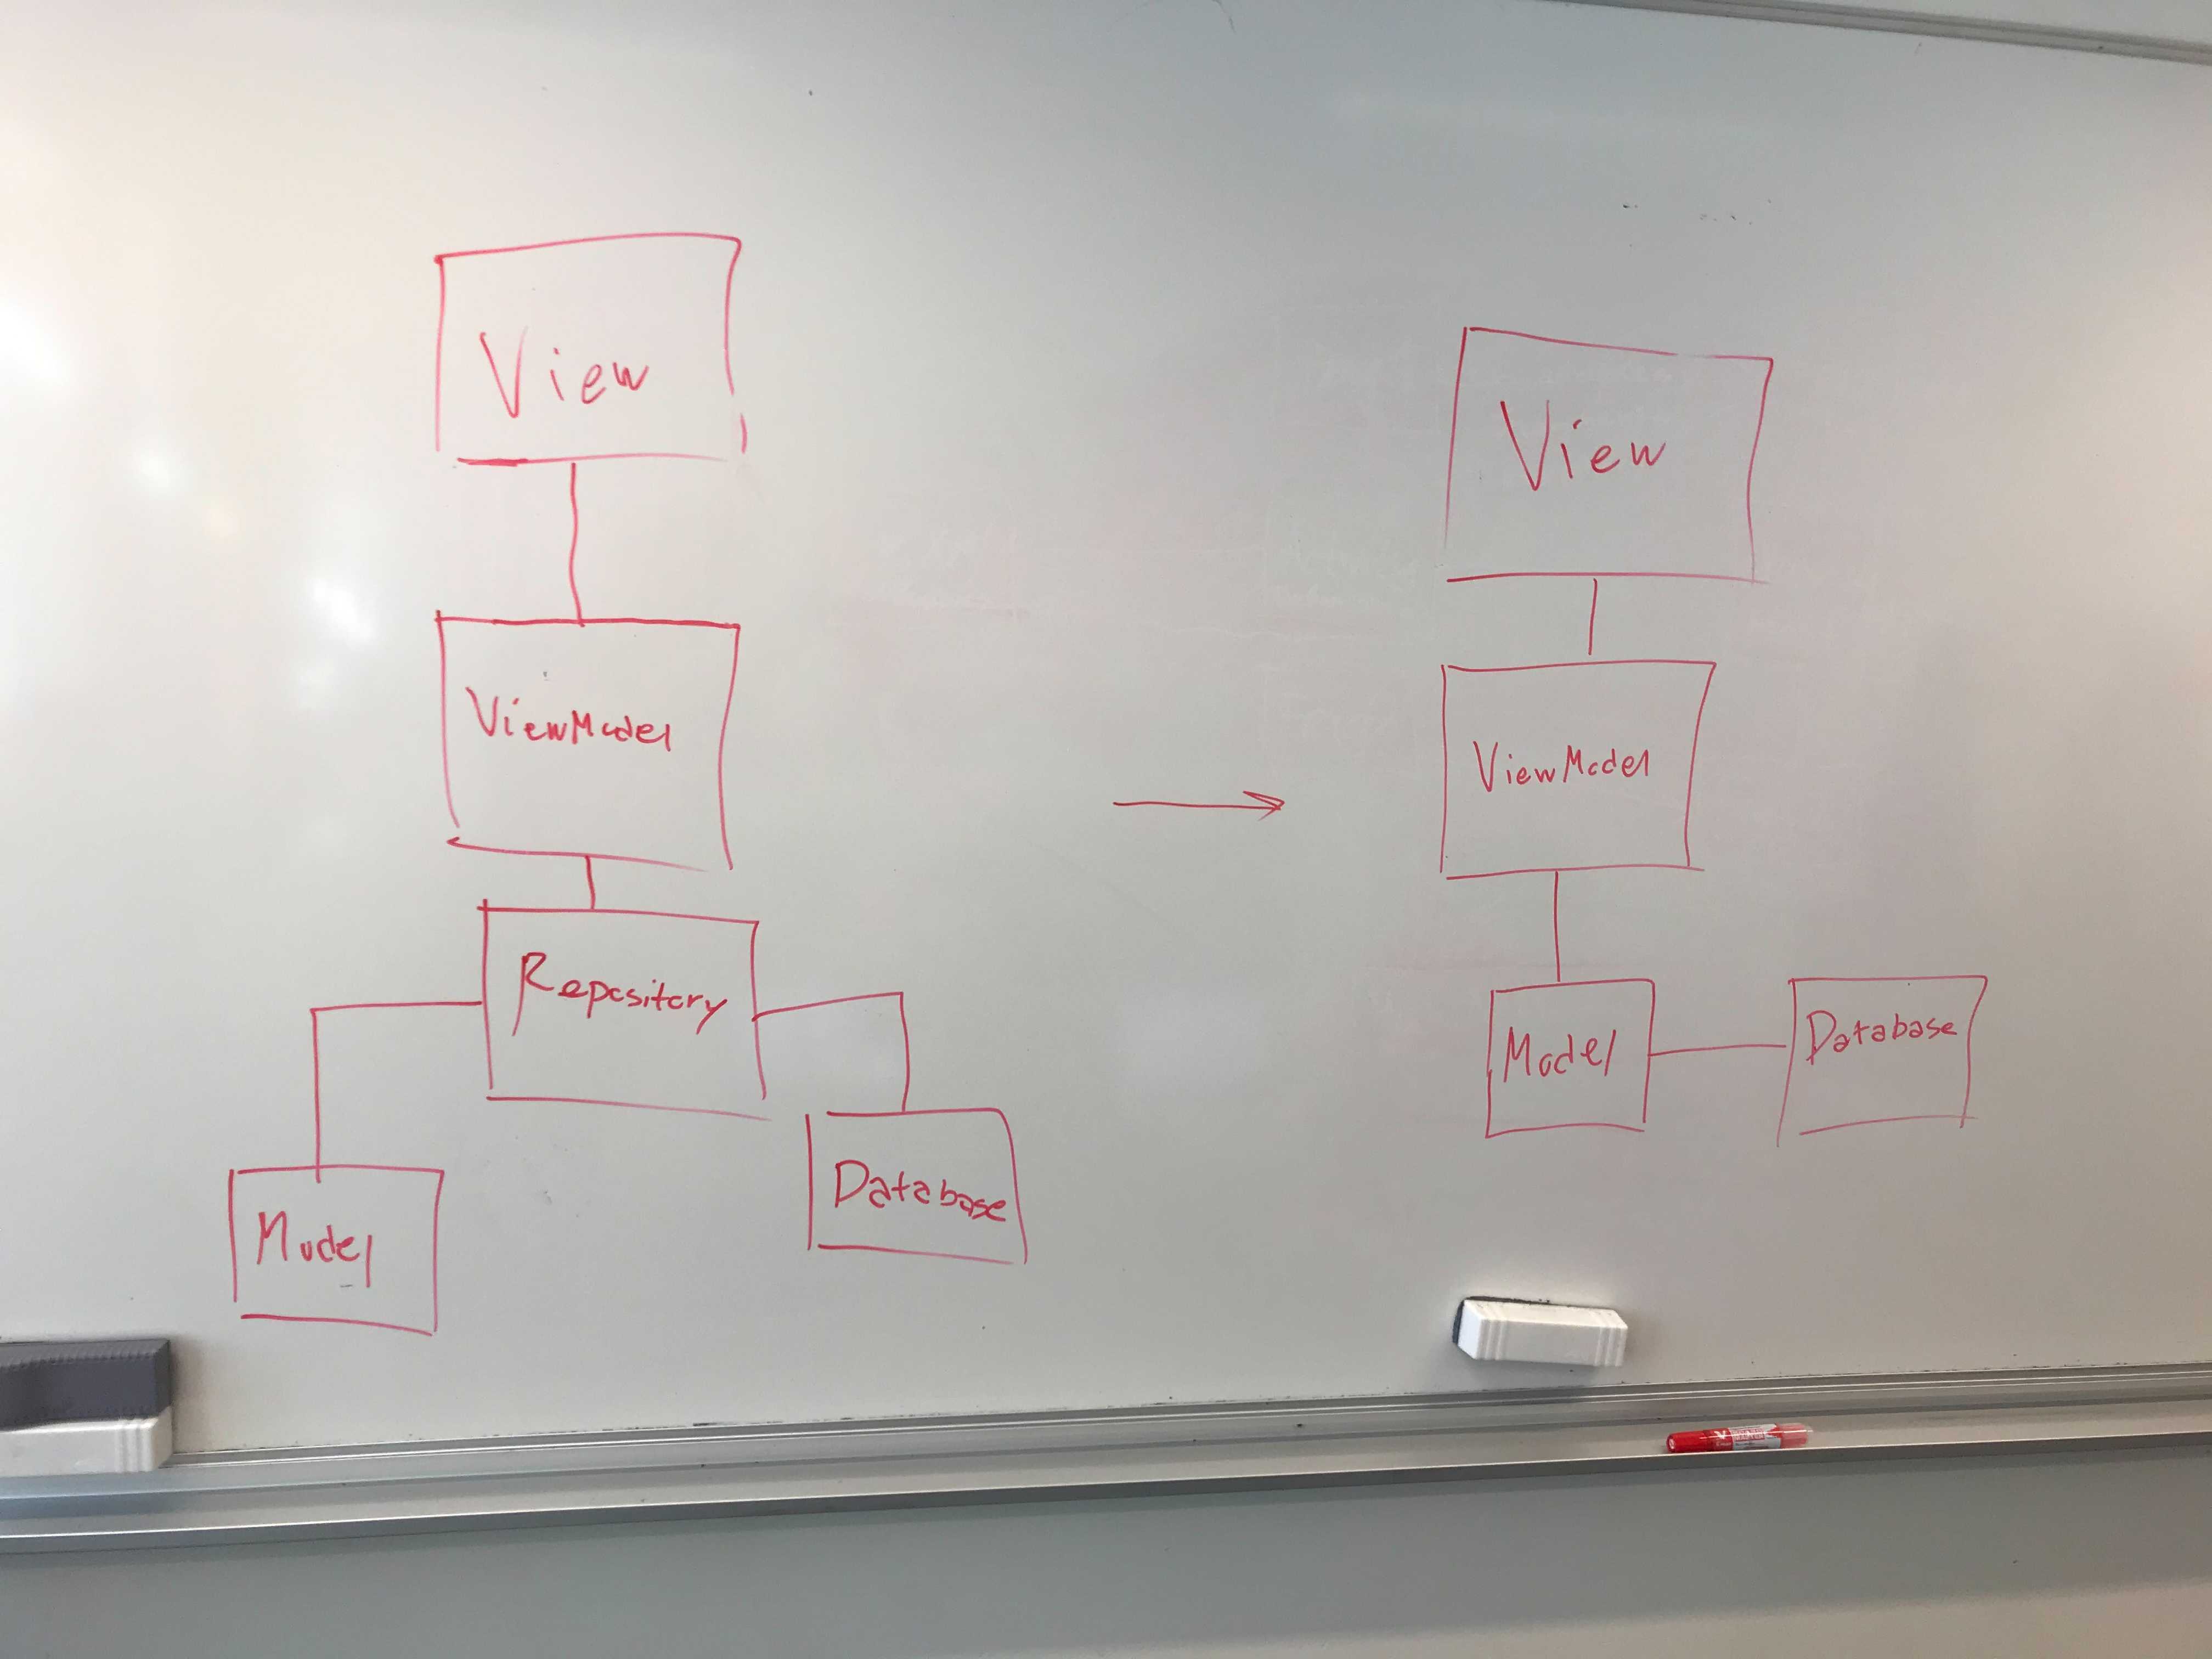 View
ViewModel
Repository
Model
Database
View
ViewModel
Model
Database